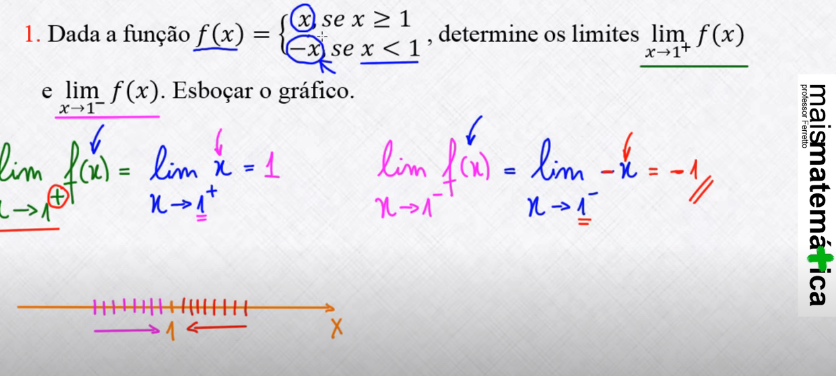 1. Dada a função f(x) = { x, se x ≥ 1
-x, se x < 1 , determine os limites lim x→1⁺ f(x)
e lim x→1⁻ f(x). Esboçar o gráfico.
lim x→1⁺ f(x) = lim x→1⁺ x = 1
lim x→1⁻ f(x) = lim x→1⁻ -x = -1
1
x
maismatemática
professor Ferretto